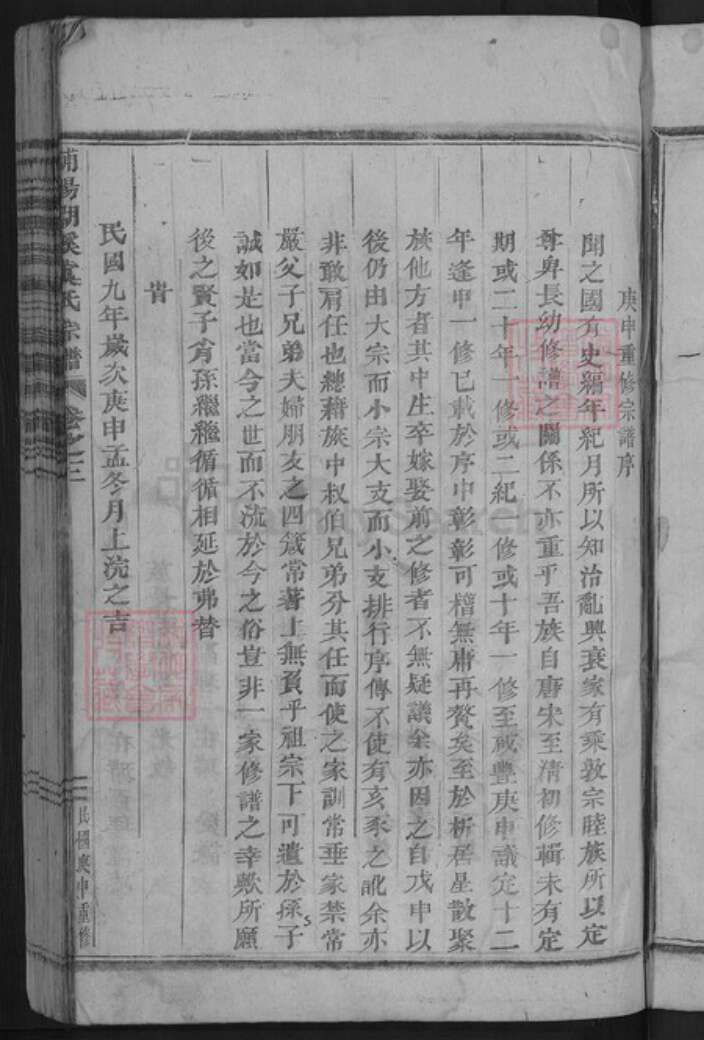 庚申重修宗譜序
聞之國有史編年紀月所以知治亂興衰家有乘敦宗睦族所以定
尊卑長幼修譜之關係不亦重乎吾族自唐宋至清初修輯未有定
期或二十年一修或二紀一修或十年一修至咸豐庚申議定十二
年逢申一修已載於序中彰彰可稽無庸再贅矣至於析居星散聚
族他方者其中生卒嫁娶前之修者不無疑議余亦因之自戊申以
後仍由大宗而小宗大支而小支排行序傳不使有亥豕之訛余亦
非敢肩任也總藉族中叔伯兄弟分其任而使之家訓常垂家禁常
嚴父子兄弟夫婦朋友之四箴常著上無負乎祖宗下可遺於孫子
誠如是也當今之世而不流於今之俗豈非一家修譜之幸歟所願
後之賢子肖孫繼繼循循相延於弗替
旹
民國九年歲次庚申孟冬月上浣之吉
浦陽湖溪虞氏宗譜 卷之三
民國庚申重修
一